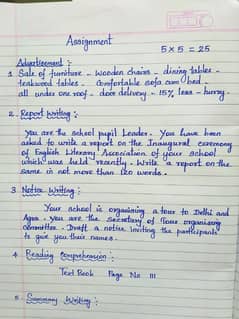 Assignment
5 x 5 = 25
Advertisement :-
1. Sale of furniture - wooden chairs - dining tables -
teakwood tables - comfortable sofa cum bed -
all under one roof - door delivery - 15% less - hurry.
2. Report Writing :-
You are the school pupil Leader. You have been
asked to write a report on the Inaugural ceremony
of English Literary Association of your school
which was held recently. Write a report on the
same in not more than 120 words.
3 Notice Writing :-
Your school is organising a tour to Delhi and
Agra. You are the secretary of Tour organising
committee. Draft a notice inviting the participants
to give you their names.
4 Reading Comprehension :-
Text Book Page No 111
5 Summary Writing :-